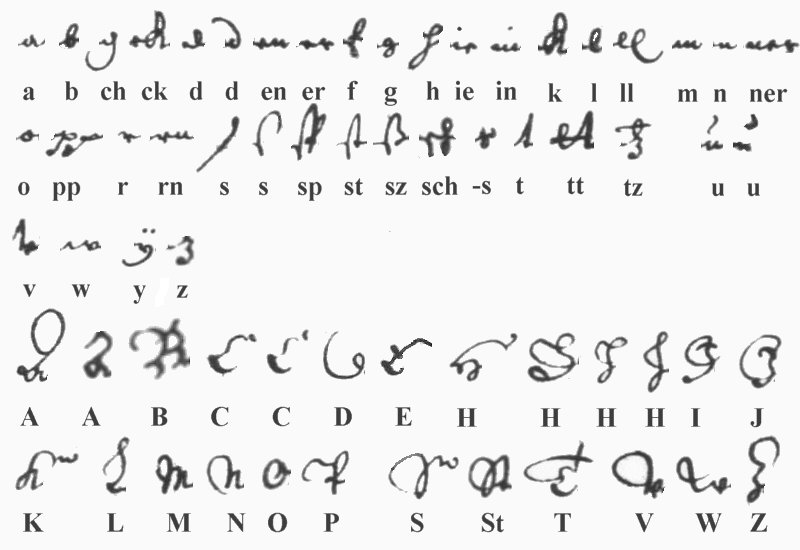 a b ch ck d d en er f g h ie in k l ll m n ner
o pp r rn s s sp st sz sch -s t tt tz u u
v w y z
A A B C C D E H H H H I J
K L M N O P S St T V W Z